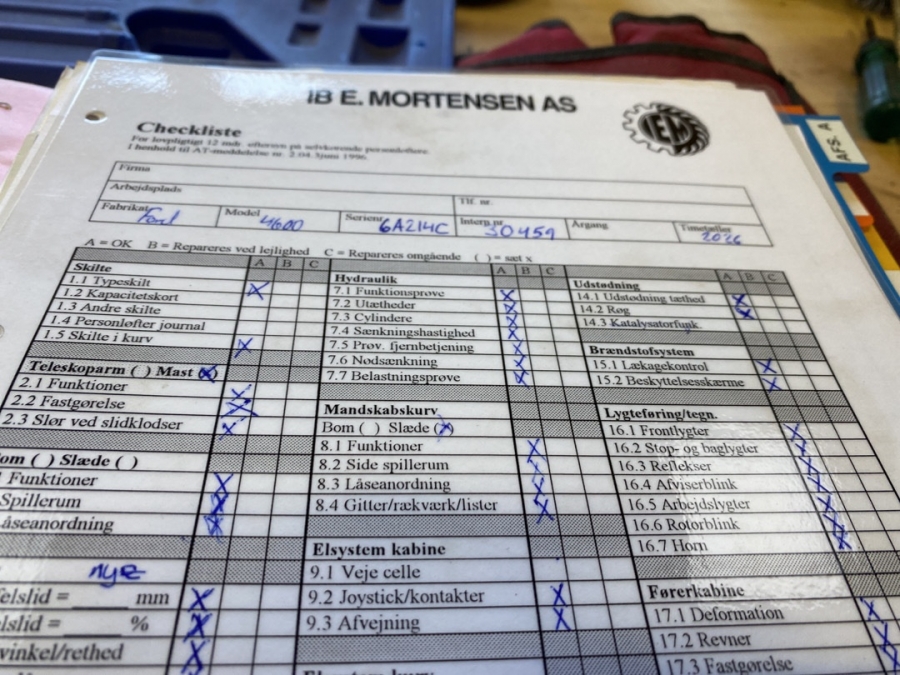 IB E. MORTENSEN AS
IEM
AFS. A
Checkliste
For lovpligtigt 12 mdr. eftersyn på selvkørende personløftere.
I henhold til AT-meddelelse nr. 2.04.3juni 1996.
Firma
Arbejdsplads
Tlf. nr.
Fabrikat Ford
Model 4600
Serienr 6A214C
Intern nr. 30459
Årgang
Timetæller 2026
A = OK B = Repareres ved lejlighed C = Repareres omgående ( ) = sæt x
Skilte A B C
1.1 Typeskilt X
1.2 Kapacitetskort
1.3 Andre skilte
1.4 Personløfter journal
1.5 Skilte i kurv X
Teleskoparm ( ) Mast (X)
2.1 Funktioner X
2.2 Fastgørelse X
2.3 Slør ved slidklodser X
om ( ) Slæde ( )
Funktioner X
Spillerum X
åseanordning X
nye
elslid = ____ mm X
elslid = ____ % X
vinkel/rethed X
Hydraulik A B C
7.1 Funktionsprøve X
7.2 Utætheder X
7.3 Cylindere X
7.4 Sænkningshastighed X
7.5 Prøv. fjernbetjening X
7.6 Nødsænkning X
7.7 Belastningsprøve X
Mandskabskurv
Bom ( ) Slæde (X)
8.1 Funktioner X
8.2 Side spillerum X
8.3 Låseanordning X
8.4 Gitter/rækværk/lister X
Elsystem kabine
9.1 Veje celle
9.2 Joystick/kontakter X
9.3 Afvejning X
Udstødning A B C
14.1 Udstødning tæthed X
14.2 Røg X
14.3 Katalysatorfunk.
Brændstofsystem
15.1 Lækagekontrol X
15.2 Beskyttelsesskærme X
Lygteføring/tegn.
16.1 Frontlygter X
16.2 Stop- og baglygter X
16.3 Reflekser X
16.4 Afviserblink X
16.5 Arbejdslygter X
16.6 Rotorblink X
16.7 Horn X
Førerkabine
17.1 Deformation X
17.2 Revner X
17.3 Fastgørelse X